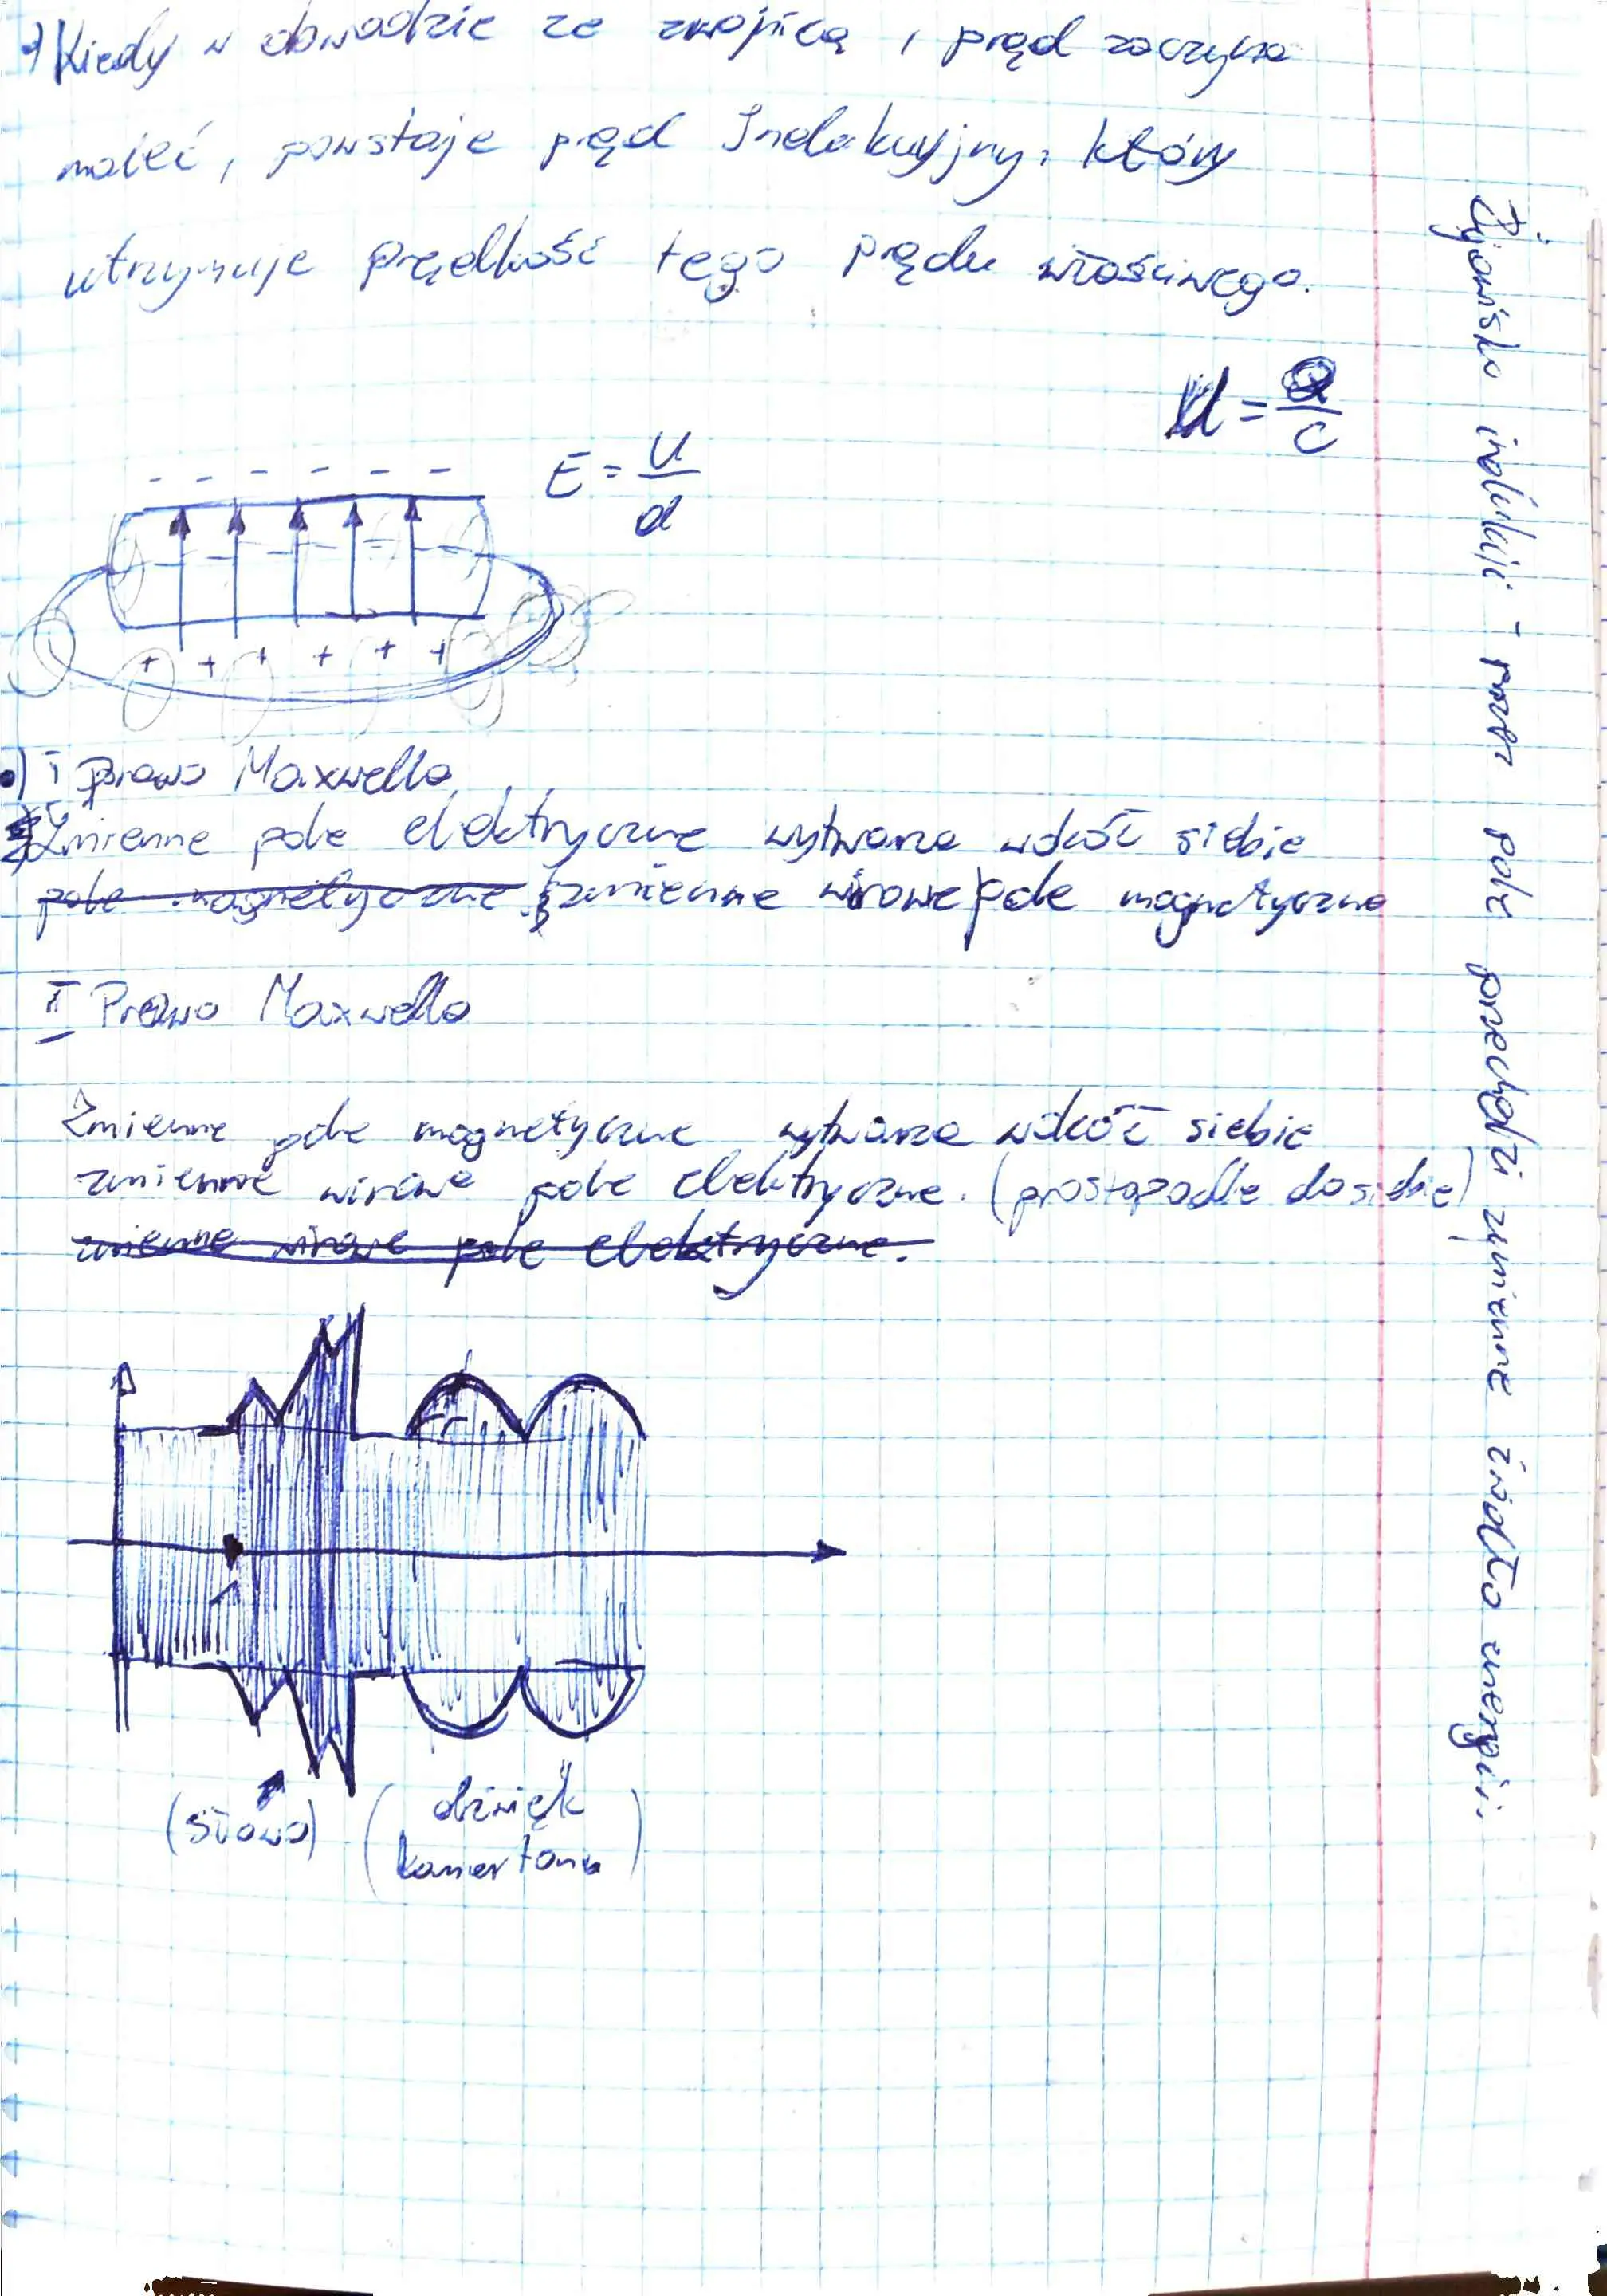 •) Kiedy w obwodzie ze zwojnicą, prąd zaczyna
maleć, powstaje prąd Indukcyjny, który
utrzymuje prędkość tego prądu właściwego.
U = Q/C
- - - - - -
E = U/d
+ + + + + +
•) I prawo Maxwella
Zmienne pole elektryczne wytwarza wokół siebie
pole magnetyczne zmienne wirowe pole magnetyczne
II Prawo Maxwella
Zmienne pole magnetyczne wytwarza wokół siebie
zmienne wirowe pole elektryczne. (prostopadle do siebie)
zmienne wirowe pole elektryczne.
(słowo)
(dźwięk
kamertonu)
Zjawisko indukcji - przez pole przechodzi zmienne źródło energii.